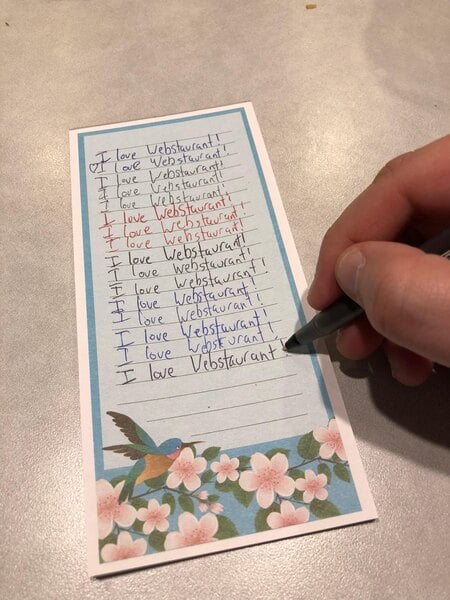 I love Webstaurant!
♡I love Webstaurant!
I love Webstaurant!
I love Webstaurant!
I love Webstaurant!
I love Webstaurant!
I love Webstaurant!
I love Webstaurant!
I love Webstaurant!
I love Webstaurant!
I love Webstaurant!
I love Webstaurant!
I love Webstaurant!
I love Webstaurant!
I love Webstaurant!
I love Webstaurant!